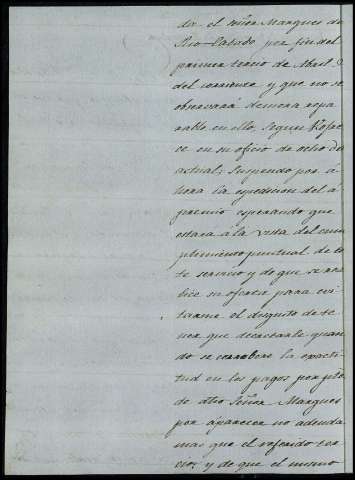 dor el señor Marques de
Rio-Cabado por fin del
primer tercio de Abril
del corriente y que no se
observará demora repa
rable en ello, segun V. ofre
ce en su oficio de ocho del
actual; suspendo por a
hora la espedicion del á
premio esperando que
estará á la vista del cum
plimiento puntual de es
te servicio y de que se rea
lice su oferta para evi
tarme el disgusto de te
ner que decretarle quan
do se corrobore la exacti
tud en los pagos por pte
de dho Señor Marques
por aparecer no adeuda
mas que el referido ter
cio; y de que el mismo